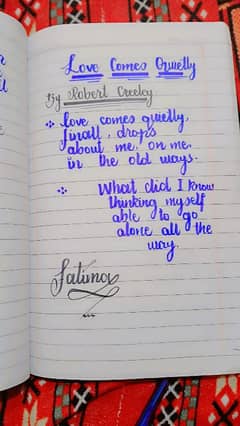 Love Comes Quietly
By Robert Creeley
love comes quietly,
finall, drops
about me, on me,
in the old ways.
What did I know
thinking myself
able to go
alone all the
way.